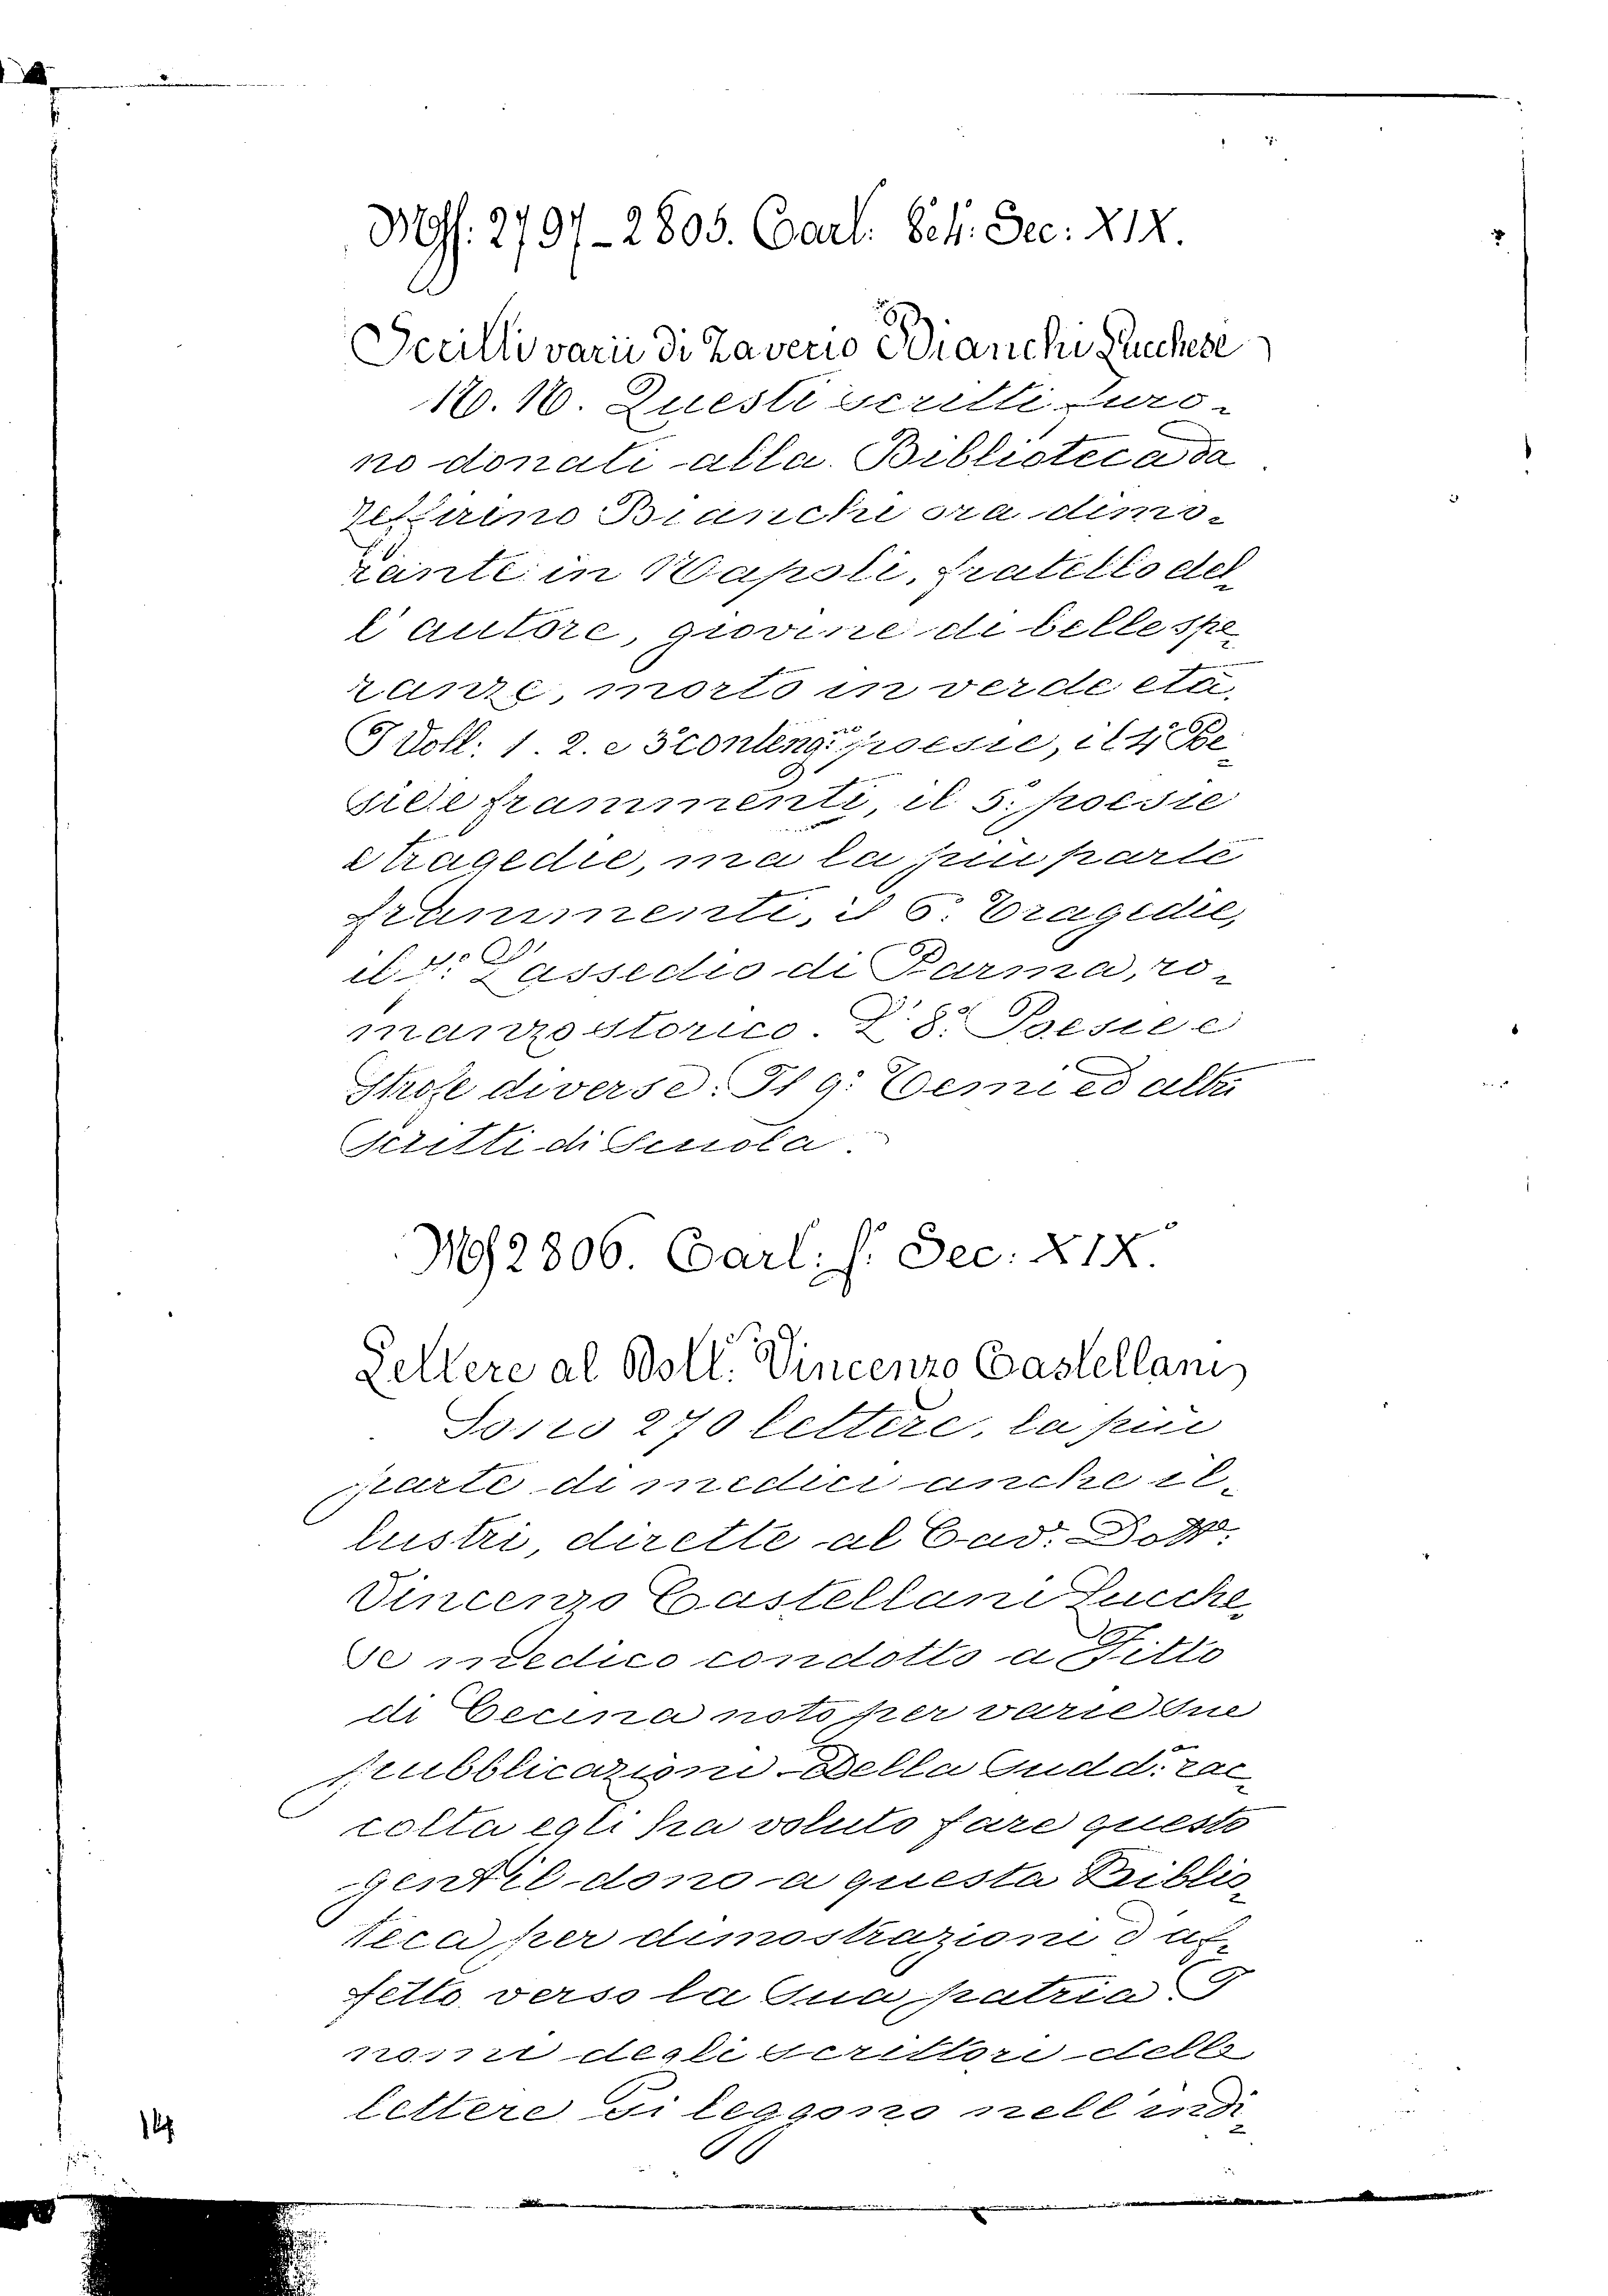 Mss. 2797-2805. Cart. Sec: XIX.
Scritti varii di Zaverio Bianchi Lucchese
Questi scritti furo-
no donati alla Biblioteca da
Zeffirino Bianchi ora dimo-
rante in Napoli, fratello del
l'autore, giovine di belle spe
ranze, morto in verde età.
I Voll: 1. 2. e 3 conteng: poesie, il 4. Poe
sie e frammenti, il 5. poesie
e tragedie, ma la più parte
frammenti, il 6. Tragedie,
il 7. L'assedio di Parma, ro-
manzo storico. L'8. Poesie e
Prose diverse. Il 9. Temi ed altri
scritti di Scuola.
Ms 2806. Cart: f. Sec: XIX.
Lettere al Dott. Vincenzo Castellani
Sono 270 lettere, la più
parte di medici anche il-
lustri, dirette al Cav. Dott.
Vincenzo Castellani Lucche
se medico condotto a
di Cecina noto per varie sue
pubblicazioni. Della sudd. rac
colta egli ha voluto fare questo
gentil dono a questa Biblio
teca per dimostrazione d'af-
fetto verso la sua patria. I
nomi degli scrittori delle
lettere si leggono nell'indi
14